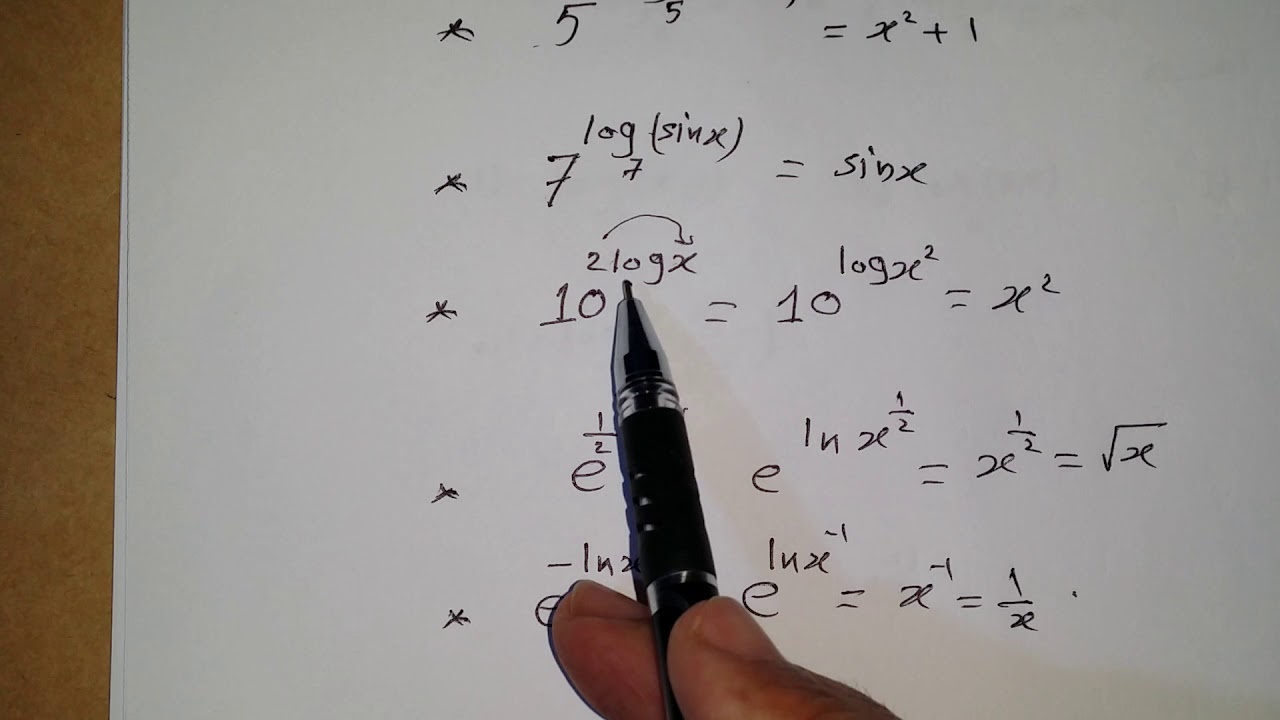 * 5 5 = x² + 1
* 7^log₇(sinx) = sinx
* 10^2logx = 10^logx² = x²
* e^1/2 e^lnx^1/2 = x^1/2 = √x
* e^-lnx e^lnx^-1 = x^-1 = 1/x .